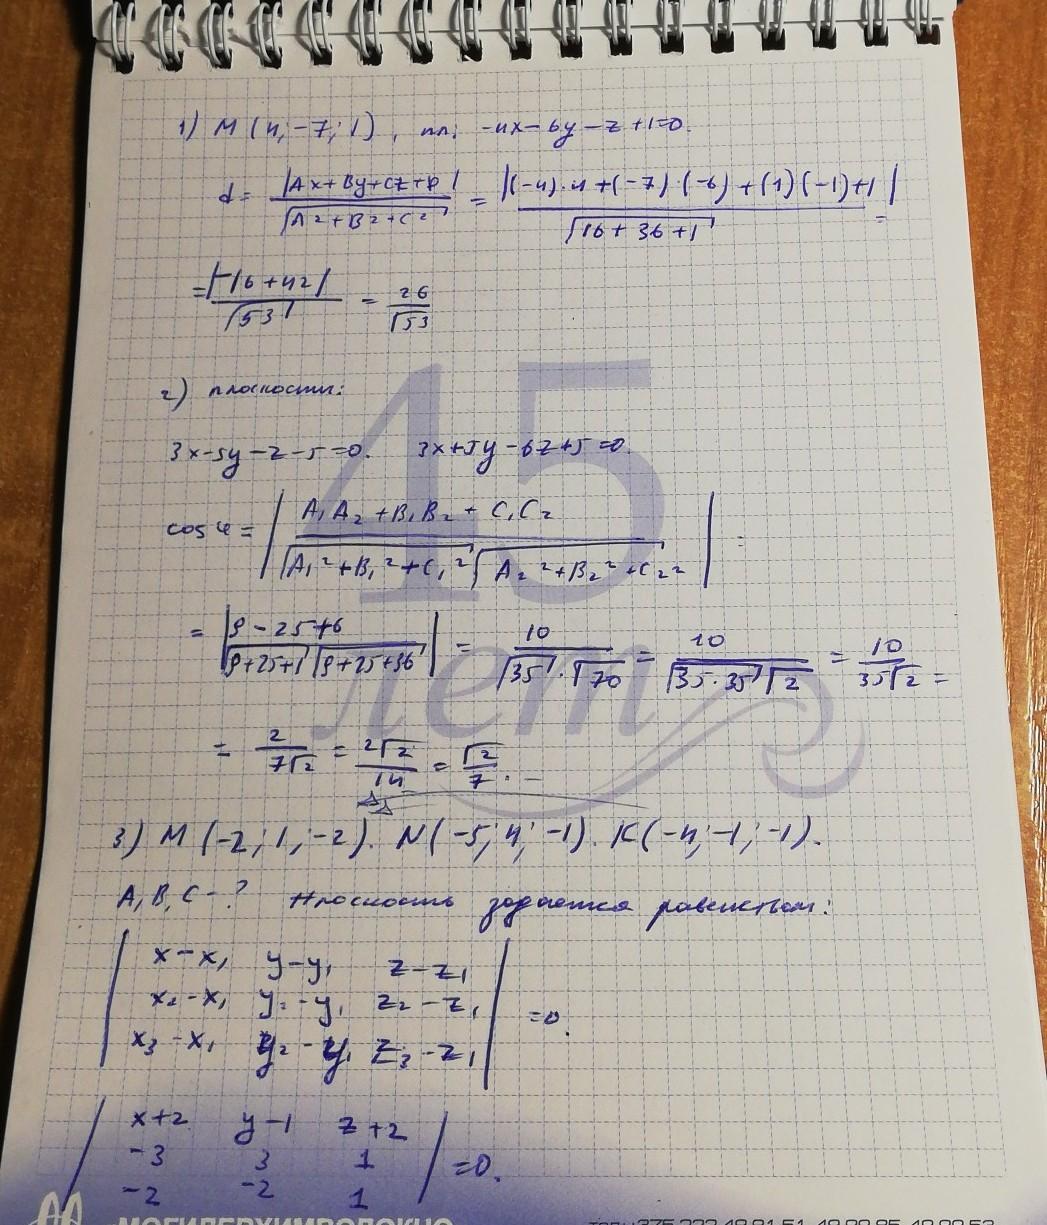 1) M (4; -7; 1), пл: -4x-6y-z+1=0.
d = |Ax+By+Cz+D| / √(A²+B²+C²) = |(-4)·4+(-7)·(-6)+(1)(-1)+1| / √(16+36+1) =
= |-16+42| / √53 = 26/√53
2) плоскости:
3x-5y-z-5=0. 3x+5y-6z+5=0.
cos φ = | A₁A₂+B₁B₂+C₁C₂ / √(A₁²+B₁²+C₁²) √(A₂²+B₂²+C₂²) | =
= |9-25+6 / √(9+25+1) √(9+25+36)| = 10 / √35·√70 = 10 / √(35·35) √2 = 10 / 35√2 =
= 2 / 7√2 = 2√2 / 14 = √2 / 7.
3) M (-2; 1; -2). N(-5; 4; -1). K(-4; -1; -1).
A, B, C - ? Плоскость задается равенством:
| x-x₁ y-y₁ z-z₁ |
| x₂-x₁ y₂-y₁ z₂-z₁ | =0.
| x₃-x₁ y₂-y₁ z₃-z₁ |
| x+2 y-1 z+2 |
| -3 3 1 | =0.
| -2 -2 1 |
45
лет